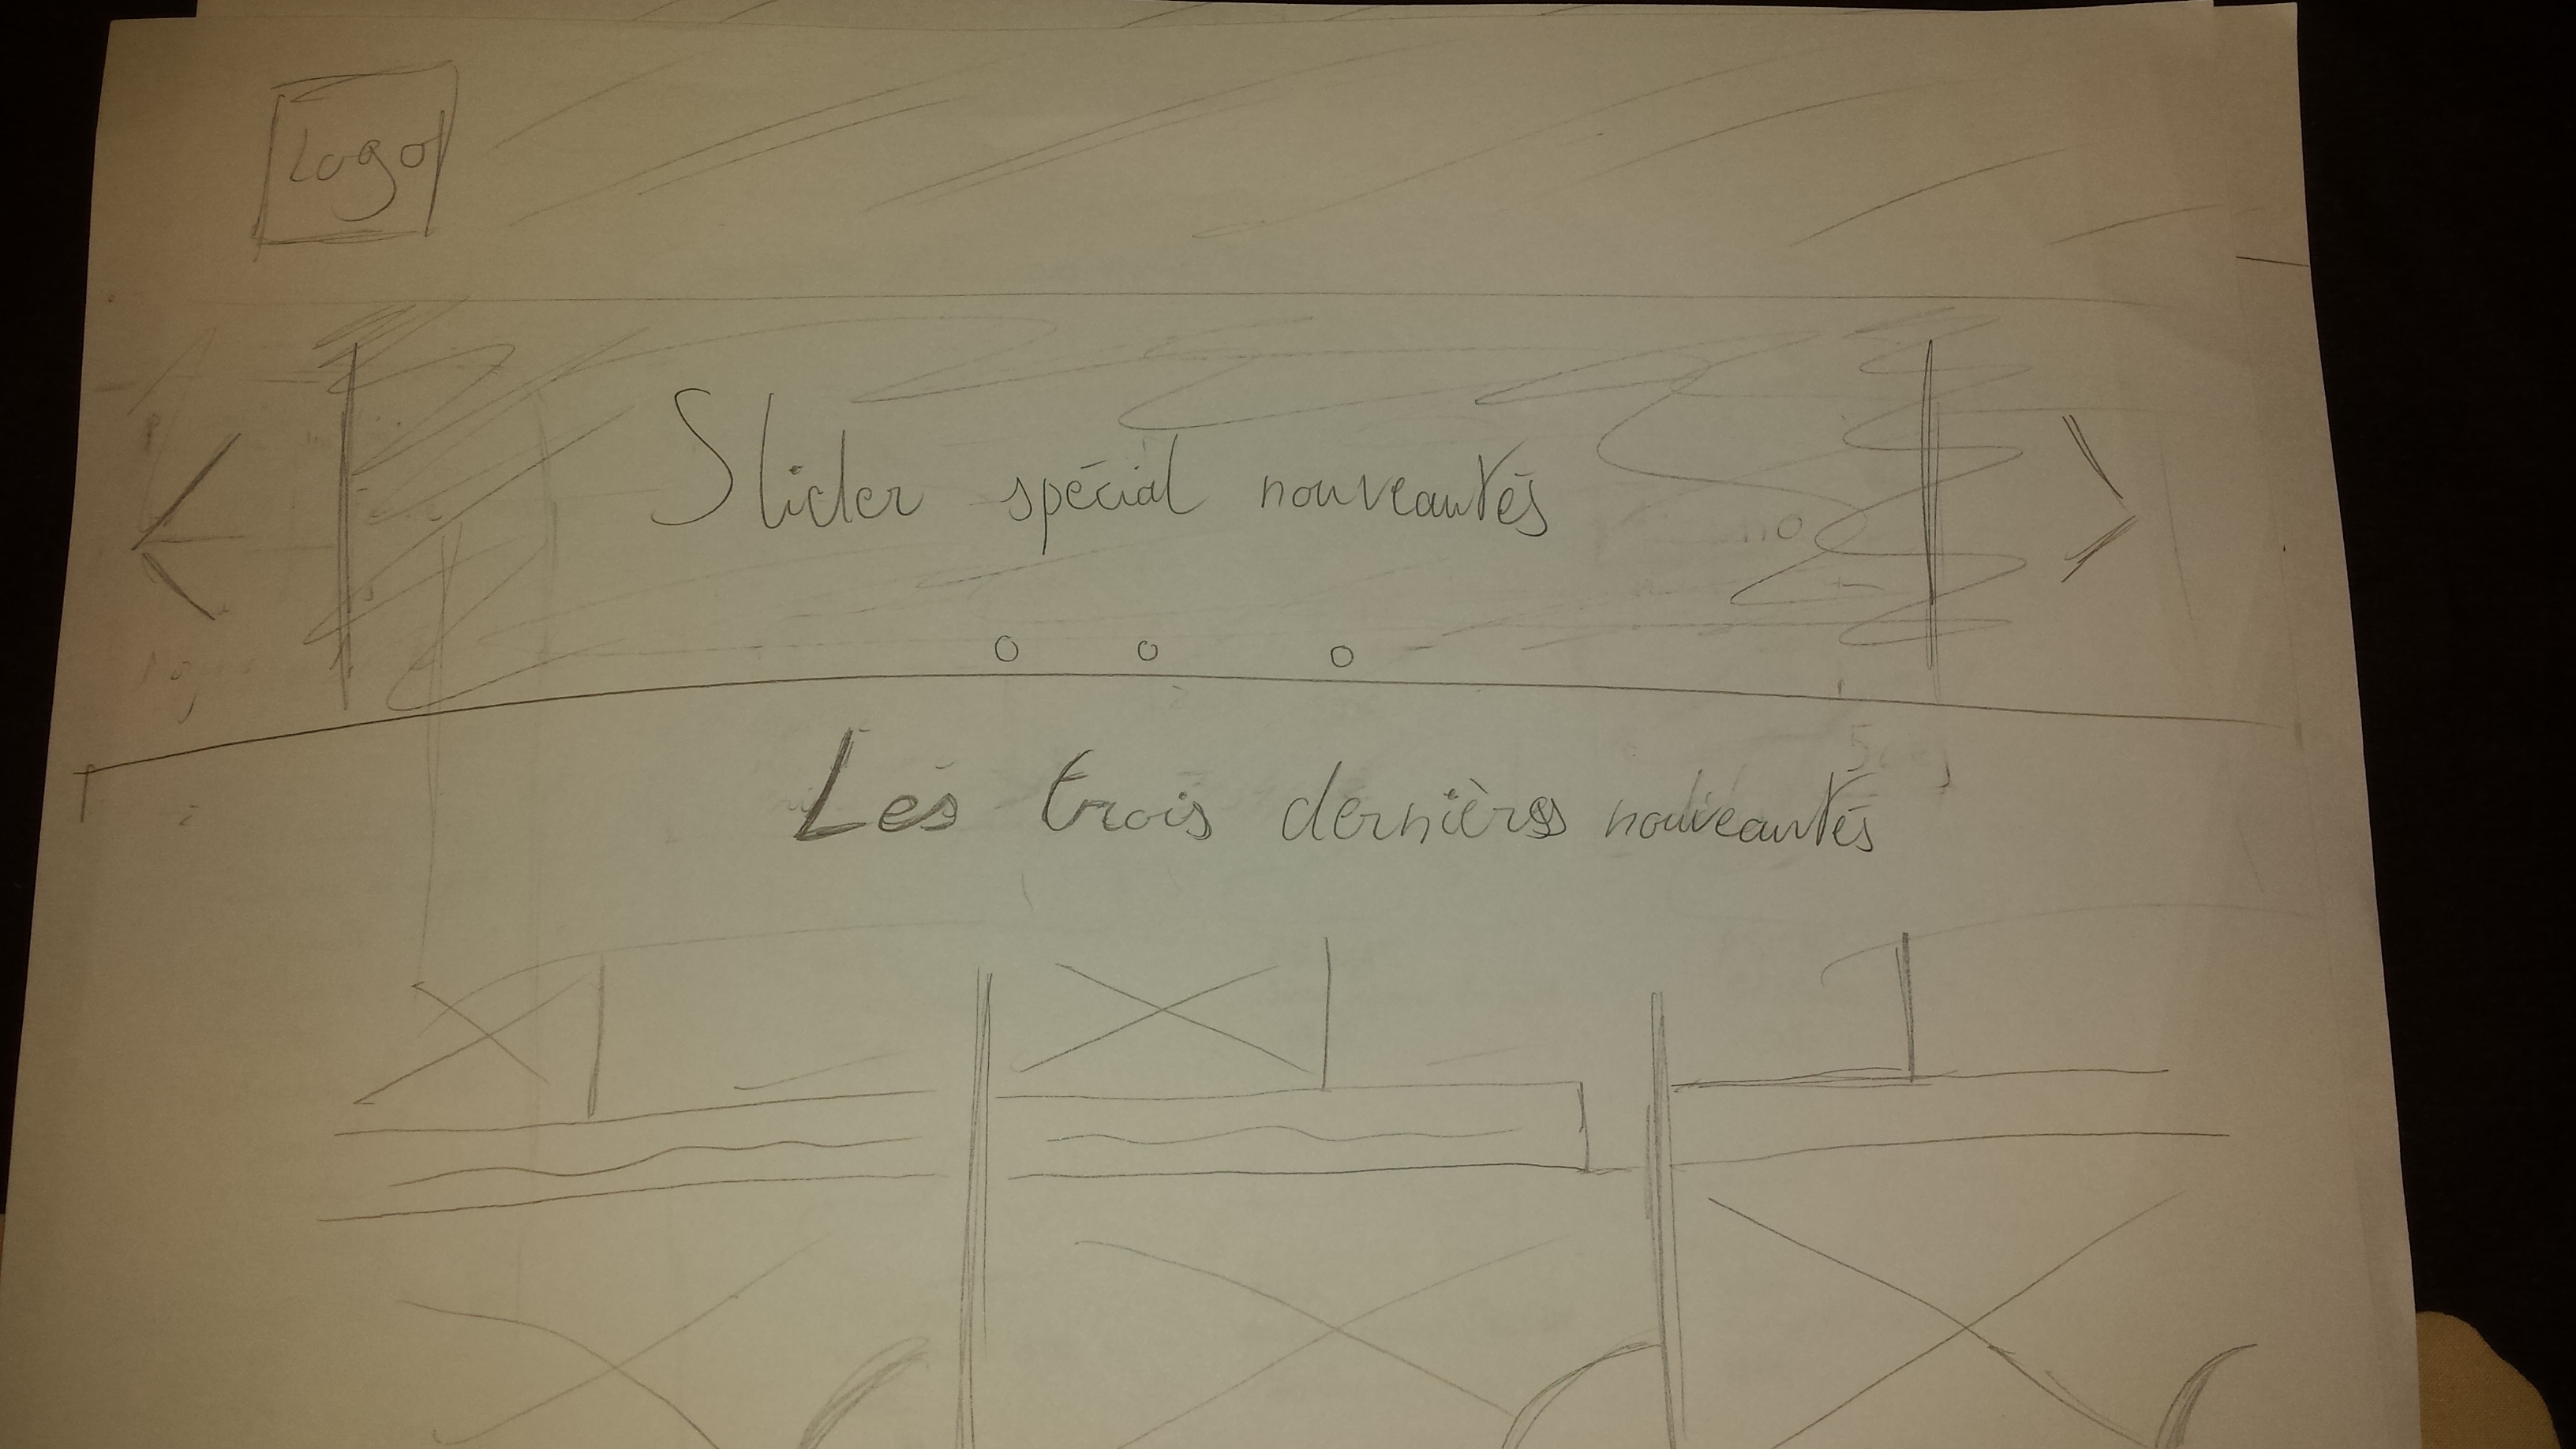 Logo
Slider spécial nouveautés
Les trois dernières nouveautés